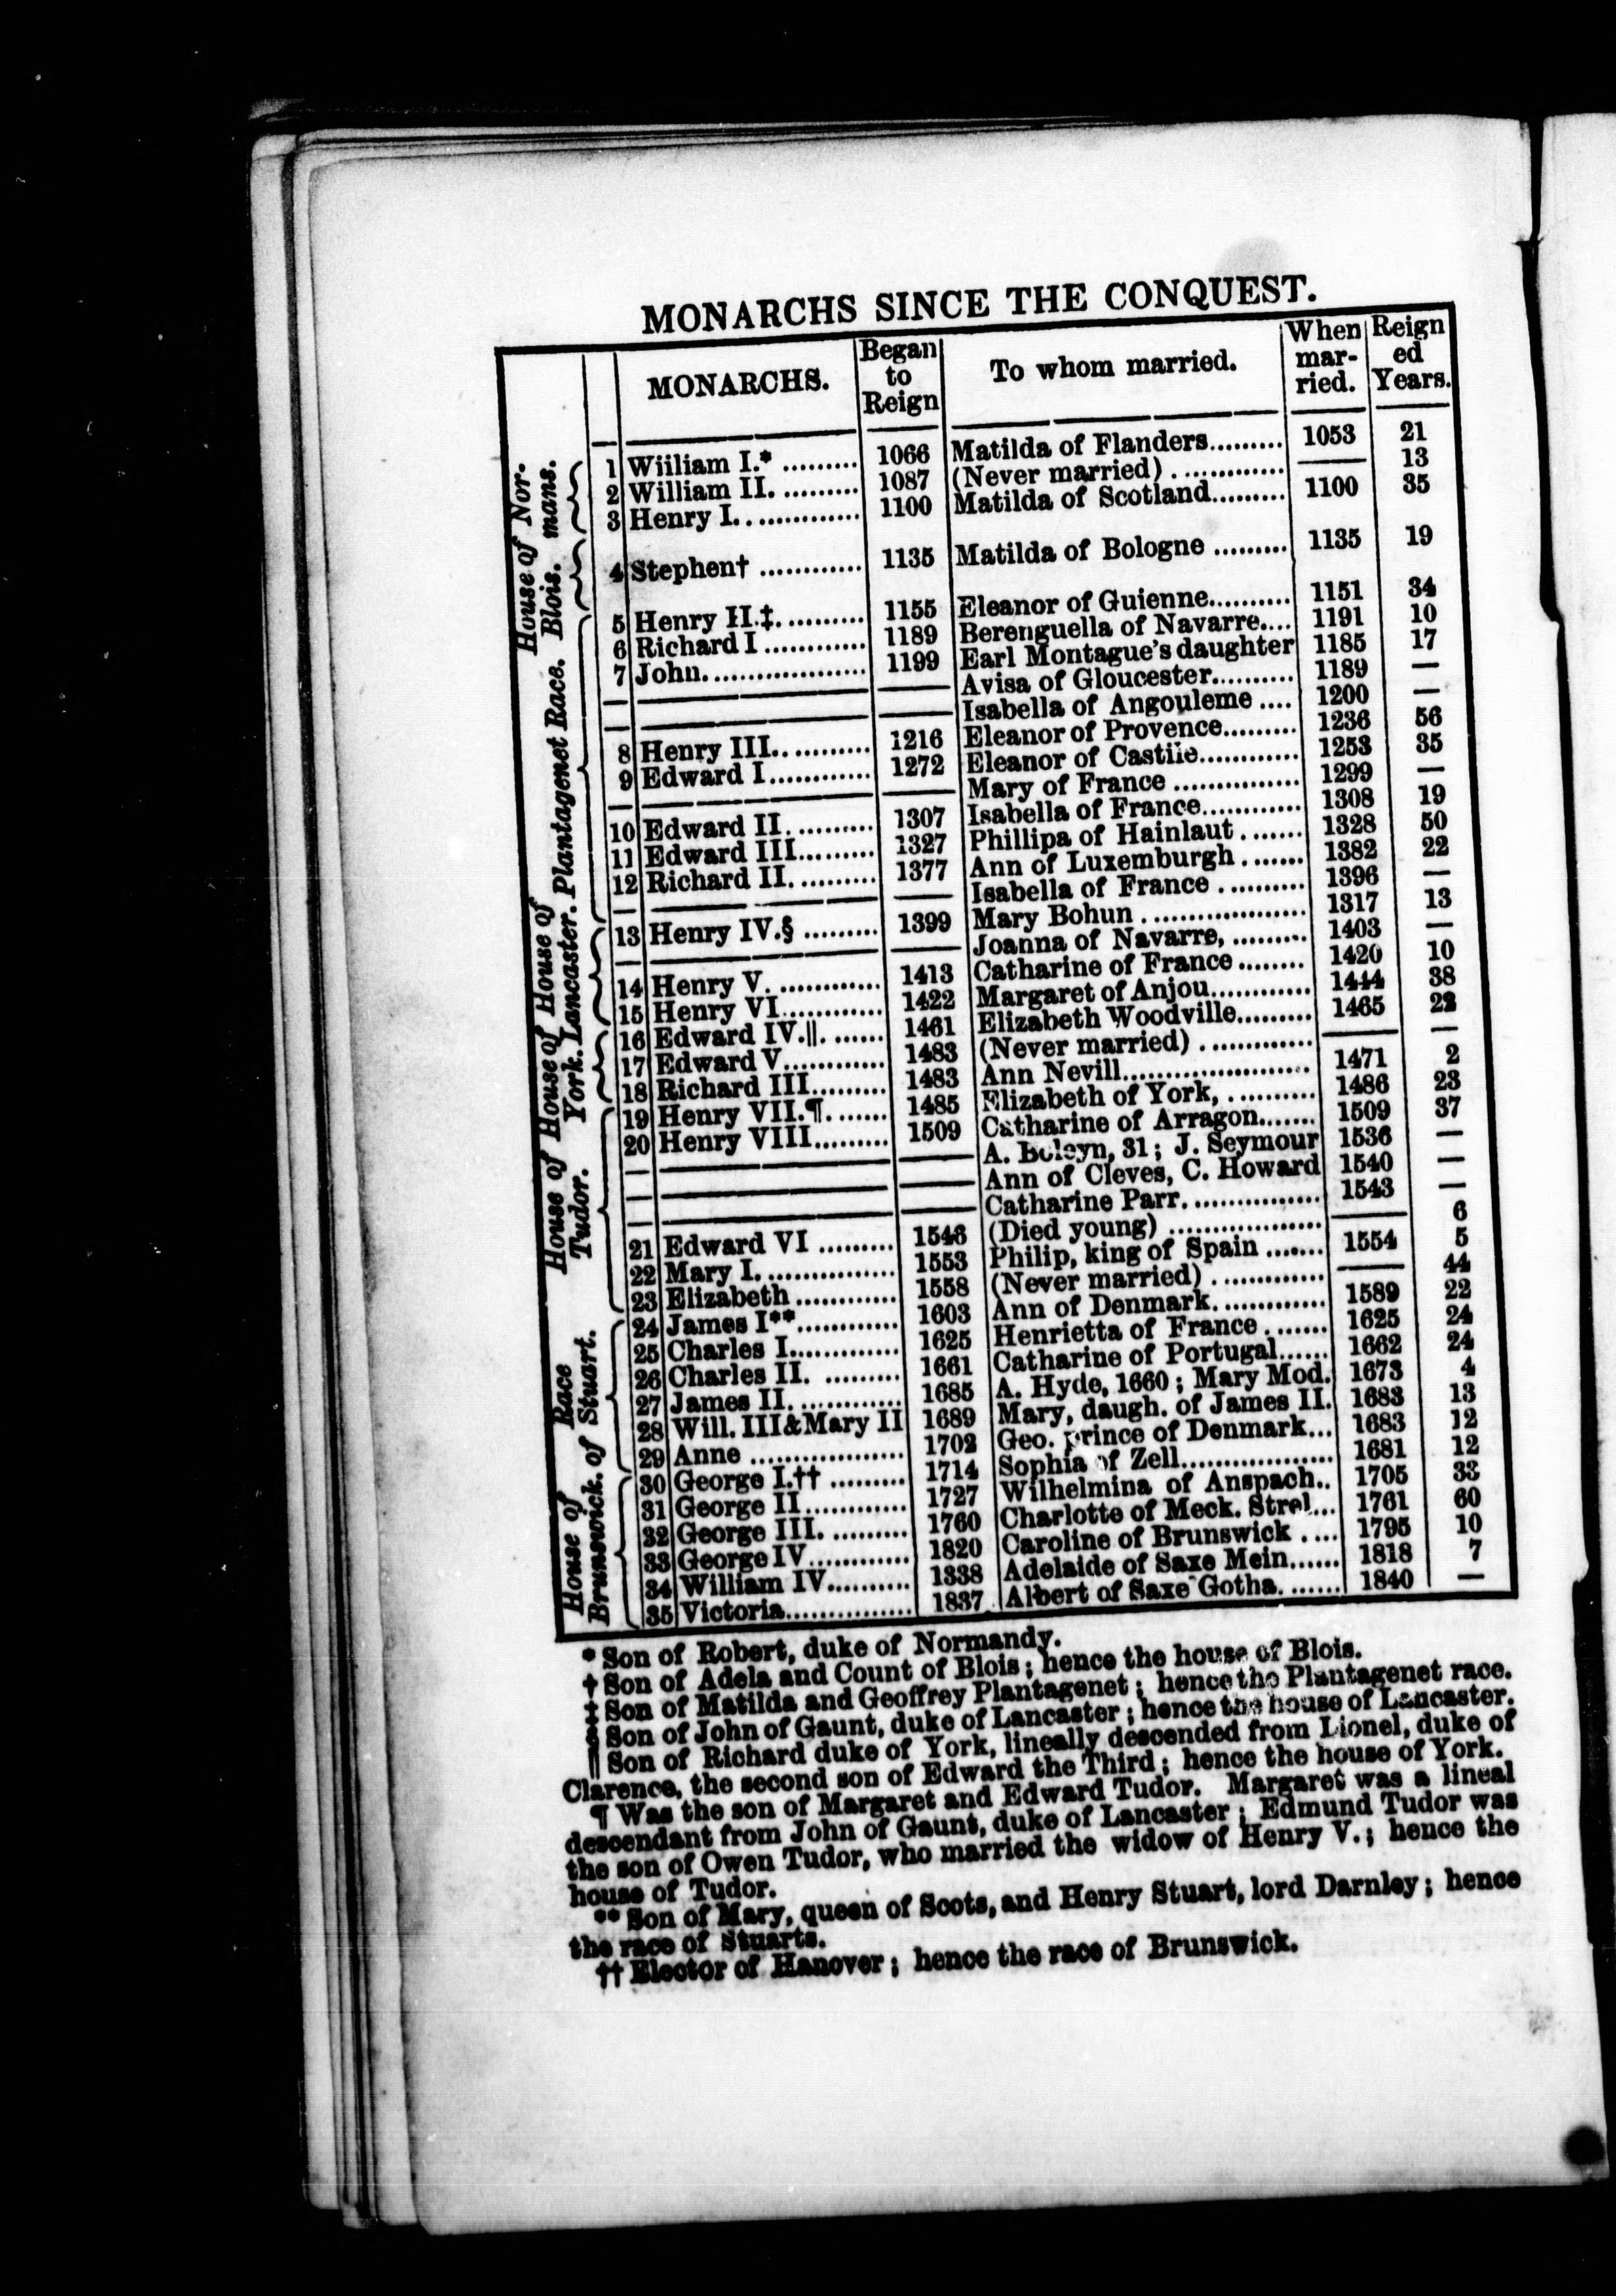 MONARCHS SINCE THE CONQUEST.
MONARCHS. Began to Reign To whom married. When mar- ried. Reign ed Years.
House of Nor- mans.
1 Wiiliam I.* .......... 1066 Matilda of Flanders......... 1053 21
2 William II. .......... 1087 (Never married) ............. —— 13
3 Henry I............... 1100 Matilda of Scotland......... 1100 35
Blois.
4 Stephen† ............ 1135 Matilda of Bologne ......... 1135 19
Plantagenet Race.
5 Henry II.‡........... 1155 Eleanor of Guienne.......... 1151 34
6 Richard I ............ 1189 Berenguella of Navarre.... 1191 10
7 John................... 1199 Earl Montague's daughter 1185 17
— —— —— Avisa of Gloucester.......... 1189 —
— —— —— Isabella of Angouleme .... 1200 —
8 Henry III............ 1216 Eleanor of Provence......... 1236 56
9 Edward I............ 1272 Eleanor of Castile............ 1253 35
— —— —— Mary of France ............... 1299 —
10 Edward II. .......... 1307 Isabella of France............ 1308 19
11 Edward III......... 1327 Phillipa of Hainlaut ........ 1328 50
12 Richard II. .......... 1377 Ann of Luxemburgh ........ 1382 22
— —— —— Isabella of France ........... 1396 —
House of Lancaster.
13 Henry IV.§ ......... 1399 Mary Bohun ................... 1317 13
— —— —— Joanna of Navarre, ......... 1403 —
14 Henry V. ............ 1413 Catharine of France ........ 1420 10
15 Henry VI............ 1422 Margaret of Anjou............ 1444 38
House of York.
16 Edward IV.||. ...... 1461 Elizabeth Woodville......... 1465 22
17 Edward V............ 1483 (Never married) ............. —— —
18 Richard III......... 1483 Ann Nevill...................... 1471 2
House of Tudor.
19 Henry VII.¶. ....... 1485 Elizabeth of York, ........... 1486 23
20 Henry VIII......... 1509 Catharine of Arragon....... 1509 37
— —— —— A. Boleyn, 31; J. Seymour 1536 —
— —— —— Ann of Cleves, C. Howard 1540 —
— —— —— Catharine Parr................ 1543 —
21 Edward VI ......... 1546 (Died young) .................. —— 6
22 Mary I. ............... 1553 Philip, king of Spain ....... 1554 5
23 Elizabeth ............ 1558 (Never married) ............. —— 44
House of Race of Stuart.
24 James I**............ 1603 Ann of Denmark............. 1589 22
25 Charles I............. 1625 Henrietta of France ........ 1625 24
26 Charles II. ......... 1661 Catharine of Portugal...... 1662 24
27 James II. ............ 1685 A. Hyde, 1660; Mary Mod. 1673 4
28 Will. III & Mary II 1689 Mary, daugh. of James II. 1683 13
29 Anne .................. 1702 Geo. prince of Denmark... 1683 12
House of Brunswick.
30 George I.†† ......... 1714 Sophia of Zell.................. 1681 12
31 George II............ 1727 Wilhelmina of Anspach.. 1705 33
32 George III. ......... 1760 Charlotte of Meck. Strel... 1761 60
33 George IV............ 1820 Caroline of Brunswick .... 1795 10
34 William IV.......... 1338 Adelaide of Saxe Mein...... 1818 7
35 Victoria............... 1837 Albert of Saxe Gotha. ...... 1840 —
* Son of Robert, duke of Normandy.
† Son of Adela and Count of Blois; hence the house of Blois.
‡ Son of Matilda and Geoffrey Plantagenet; hence the Plantagenet race.
§ Son of John of Gaunt, duke of Lancaster; hence the house of Lancaster.
|| Son of Richard duke of York, lineally descended from Lionel, duke of
Clarence, the second son of Edward the Third; hence the house of York.
¶ Was the son of Margaret and Edward Tudor. Margaret was a lineal
descendant from John of Gaunt, duke of Lancaster; Edmund Tudor was
the son of Owen Tudor, who married the widow of Henry V.; hence the
house of Tudor.
** Son of Mary, queen of Scots, and Henry Stuart, lord Darnley; hence
the race of Stuarts.
†† Elector of Hanover; hence the race of Brunswick.